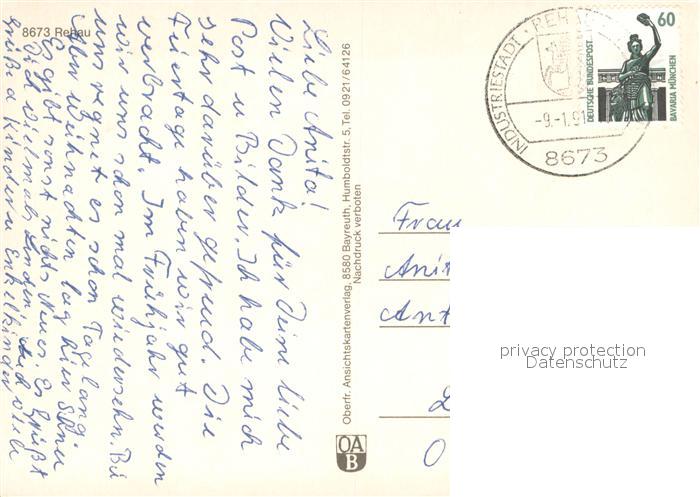 8673 Rehau
Liebe Anita!
Vielen Dank für Deine liebe
Post u Bilder. Ich habe mich
sehr darüber gefreud. Die
Feiertage haben wir gut
verbracht. Im Frühjahr werden
wir uns schon mal wiedersehn. Bei
uns regnet es schon Tagelang.
Aber Weihnachten lag hier Schnee
Es gibt sonst nichts Neues. Es grüßt
Dich vielmals
Grüße a Kindern Enkelkinder
Oberfr. Ansichtskartenverlag, 8580 Bayreuth, Humboldtstr. 5, Tel. 0921/64126
Nachdruck verboten
OA
B
INDUSTRIESTADT · REHAU
-9.-1.91
8673
60
DEUTSCHE BUNDESPOST
BAVARIA MÜNCHEN
Frau
privacy protection
Datenschutz